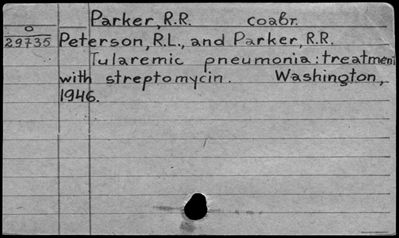 Parker, R.R. coaвт.
0
29735 Peterson, R.L., and Parker, R.R.
Tularemic pneumonia: treatment
with streptomycin. Washington,
1946.